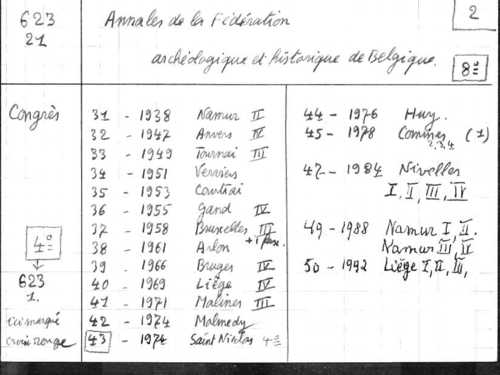 623
21
Annales de la Fédération
archéologique et historique de Belgique.
2
8º
Congrès
31 - 1938 Namur II
32 - 1947 Anvers IV
33 - 1949 Tournai III
34 - 1951 Verviers
35 - 1953 Courtrai
36 - 1955 Gand IV
37 - 1958 Bruxelles III
38 - 1961 Arlon
39 - 1966 Bruges IV
40 - 1969 Liège IV
41 - 1971 Malines III
42 - 1974 Malmedy
43 - 1974 Saint Niklas 4º
44 - 1976 Huy.
45 - 1978 Comines (1)
2,3,4
47 - 1984 Nivelles
I, II, III, IV
49 - 1988 Namur I, II.
Namur III, IV
50 - 1992 Liège I, II, III,
4º
623
1.
croix rouge